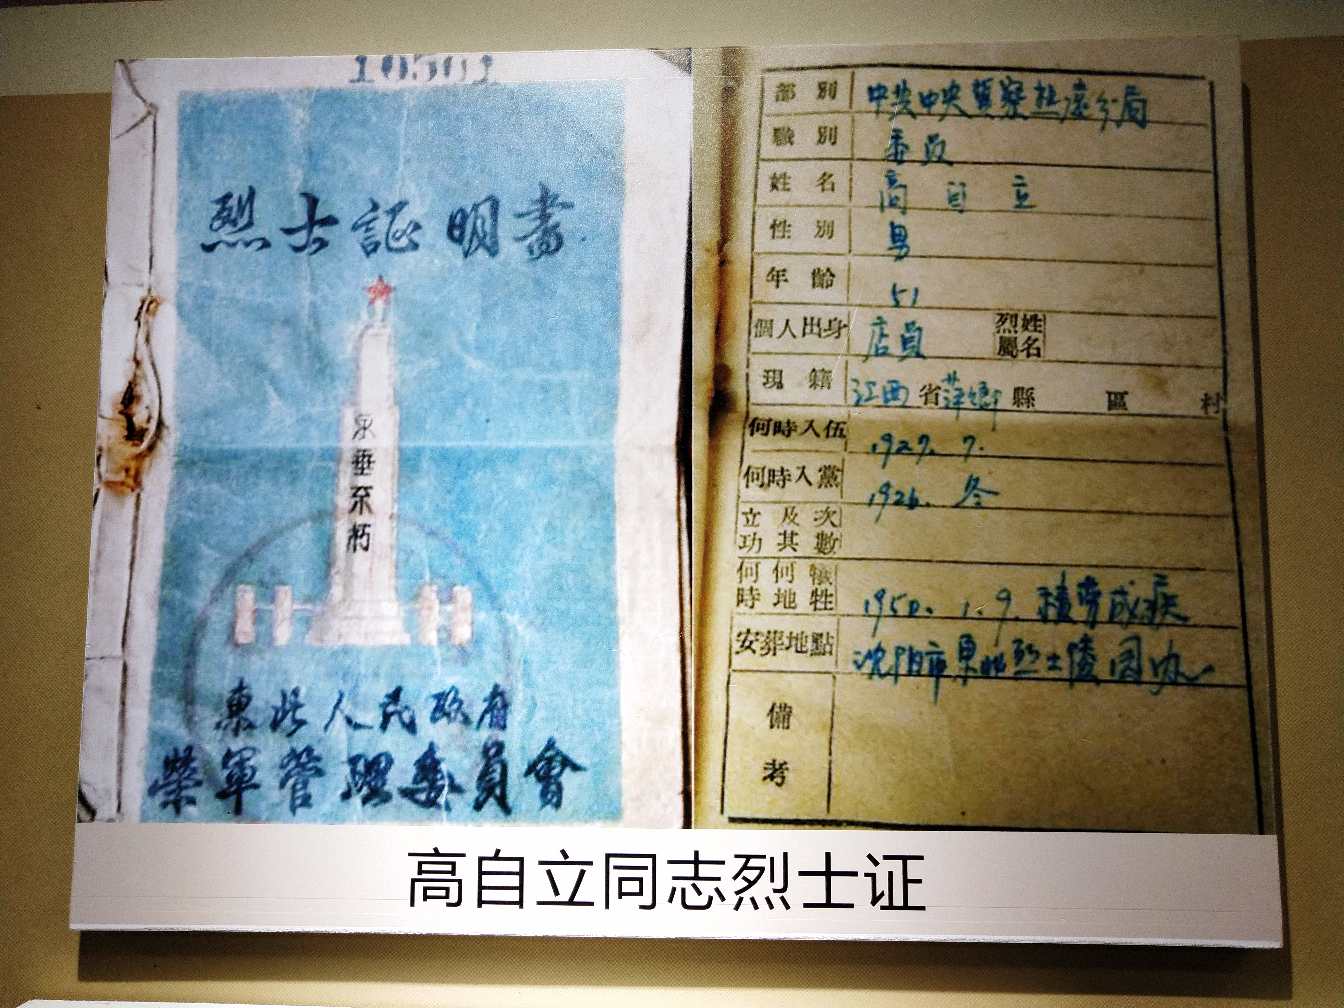 10501
烈士証明書
永垂不朽
東北人民政府
榮軍管理委員會
部別 中共中央冀察热遼分局
職別 委員
姓名 高自立
性別 男
年齡 51
個人出身 店員 烈屬姓名
現籍 江西省萍鄉縣 區 村
何時入伍 1927. 7.
何時入黨 1926. 冬
立功及其次數
何時何地犧牲 1950. 1. 9. 積劳成疾
安葬地點 沈阳市東北烈士陵园内
備考
高自立同志烈士证